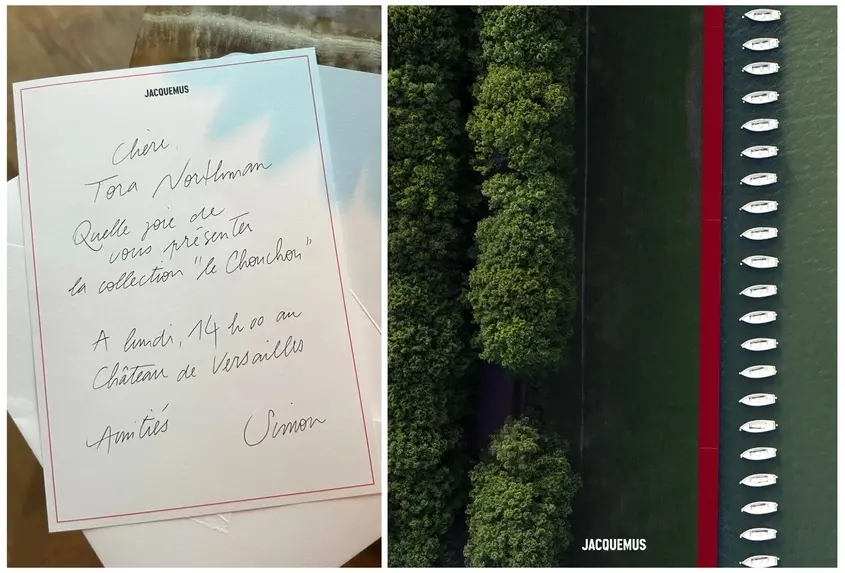 JACQUEMUS
Chère,
Tora Northman
Quelle joie de
vous présenter
la collection "le Chouchou"
A lundi, 14 h 00 au
Château de Versailles
Amitiés
Simon
JACQUEMUS